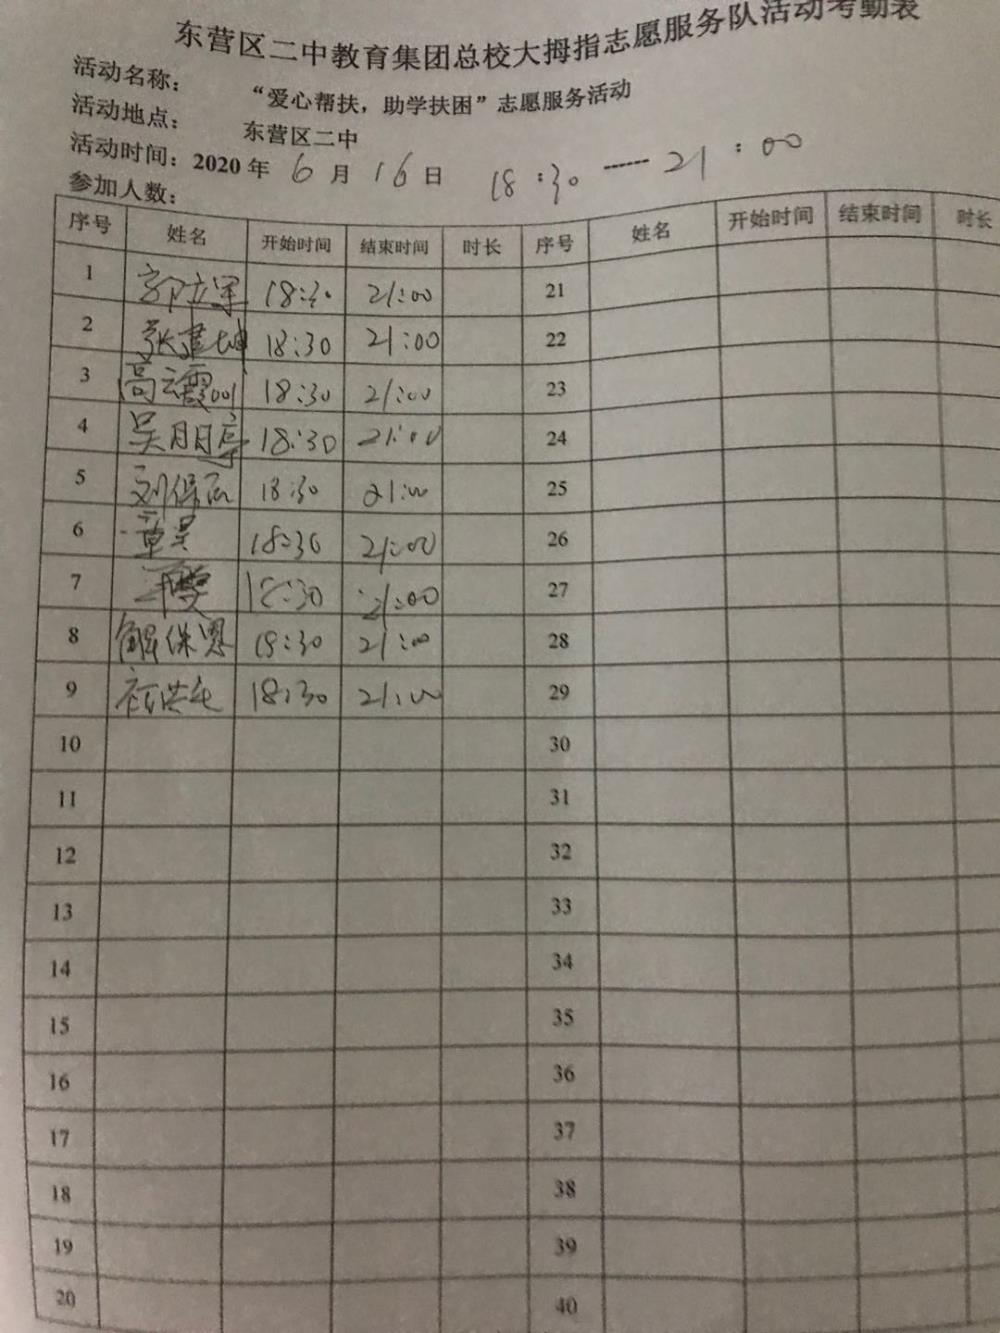 东营区二中教育集团总校大拇指志愿服务队活动考勤表
活动名称： “爱心帮扶，助学扶困”志愿服务活动
活动地点： 东营区二中
活动时间：2020年 6月 16日 18:30-----21:00
参加人数：
序号 姓名 开始时间 结束时间 时长 序号 姓名 开始时间 结束时间 时长
1 18:30 21:00 21
2 张建坤 18:30 21:00 22
3 高云霞 18:30 21:00 23
4 吴朋亭 18:30 21:00 24
5 18:30 21:00 25
6 18:30 21:00 26
7 18:30 21:00 27
8 18:30 21:00 28
9 18:30 21:00 29
10 30
11 31
12 32
13 33
14 34
15 35
16 36
17 37
18 38
19 39
20 40